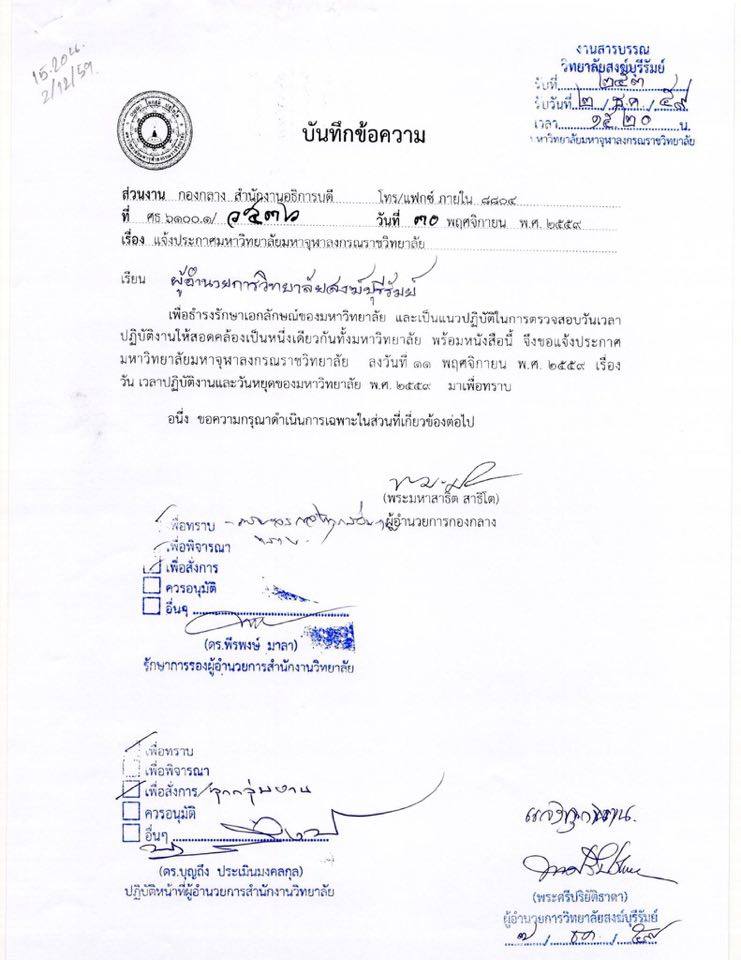 15.20น.
2/12/59.
งานสารบรรณ
วิทยาลัยสงฆ์บุรีรัมย์
รับที่ ๒๕๓
รับวันที่ ๒ / ธ.ค. / ๕๙
เวลา ๑๕.๒๐ น.
มหาวิทยาลัยมหาจุฬาลงกรณราชวิทยาลัย
บันทึกข้อความ
ส่วนงาน กองกลาง สำนักงานอธิการบดี โทร/แฟกซ์ ภายใน ๘๘๐๔
ที่ ศธ ๖๑๐๐.๑/ ว๕๓๖ วันที่ ๓๐ พฤศจิกายน พ.ศ. ๒๕๕๙
เรื่อง แจ้งประกาศมหาวิทยาลัยมหาจุฬาลงกรณราชวิทยาลัย
เรียน ผู้อำนวยการวิทยาลัยสงฆ์บุรีรัมย์
เพื่อธำรงรักษาเอกลักษณ์ของมหาวิทยาลัย และเป็นแนวปฏิบัติในการตรวจสอบวันเวลา
ปฏิบัติงานให้สอดคล้องเป็นหนึ่งเดียวกันทั้งมหาวิทยาลัย พร้อมหนังสือนี้ จึงขอแจ้งประกาศ
มหาวิทยาลัยมหาจุฬาลงกรณราชวิทยาลัย ลงวันที่ ๑๑ พฤศจิกายน พ.ศ. ๒๕๕๙ เรื่อง
วัน เวลาปฏิบัติงานและวันหยุดของมหาวิทยาลัย พ.ศ. ๒๕๕๙ มาเพื่อทราบ
อนึ่ง ขอความกรุณาดำเนินการเฉพาะในส่วนที่เกี่ยวข้องต่อไป
(พระมหาสาธิต สาธิโต)
ผู้อำนวยการกองกลาง
เพื่อทราบ
เพื่อพิจารณา
เพื่อสั่งการ
ควรอนุมัติ
อื่นๆ
(ดร.พีรพงษ์ มาลา)
รักษาการรองผู้อำนวยการสำนักงานวิทยาลัย
เพื่อทราบ
เพื่อพิจารณา
เพื่อสั่งการ ทุกกลุ่มงาน
ควรอนุมัติ
อื่นๆ
(ดร.บุญถึง ประเมินมงคลกุล)
ปฏิบัติหน้าที่ผู้อำนวยการสำนักงานวิทยาลัย
(พระศรีปริยัติธาดา)
ผู้อำนวยการวิทยาลัยสงฆ์บุรีรัมย์
๗ / ธค / ๕๙